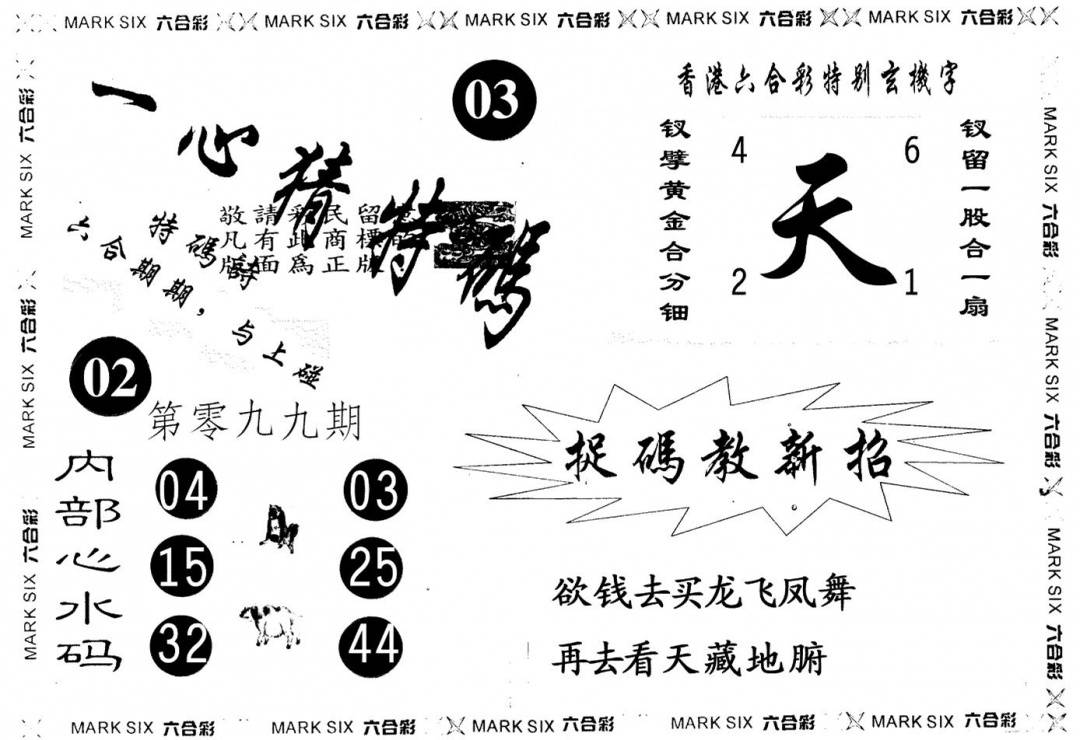 MARK SIX 六合彩 MARK SIX 六合彩 MARK SIX 六合彩 MARK SIX 六合彩 MARK SIX 六合彩
MARK SIX 六合彩
MARK SIX 六合彩
MARK SIX 六合彩
一心猜特碼
03
敬請彩民留意
凡有此商標的
版面為正版
特碼詩
六合期期，与上碰
02
第零九九期
内部心水码
04 03
15 25
32 44
香港六合彩特别玄機字
钗擘黄金合分钿
4 6
天
2 1
钗留一股合一扇
捉碼教新招
欲钱去买龙飞凤舞
再去看天藏地腑
MARK SIX 六合彩
MARK SIX 六合彩
MARK SIX 六合彩
MARK SIX 六合彩 MARK SIX 六合彩 MARK SIX 六合彩 MARK SIX 六合彩 MARK SIX 六合彩